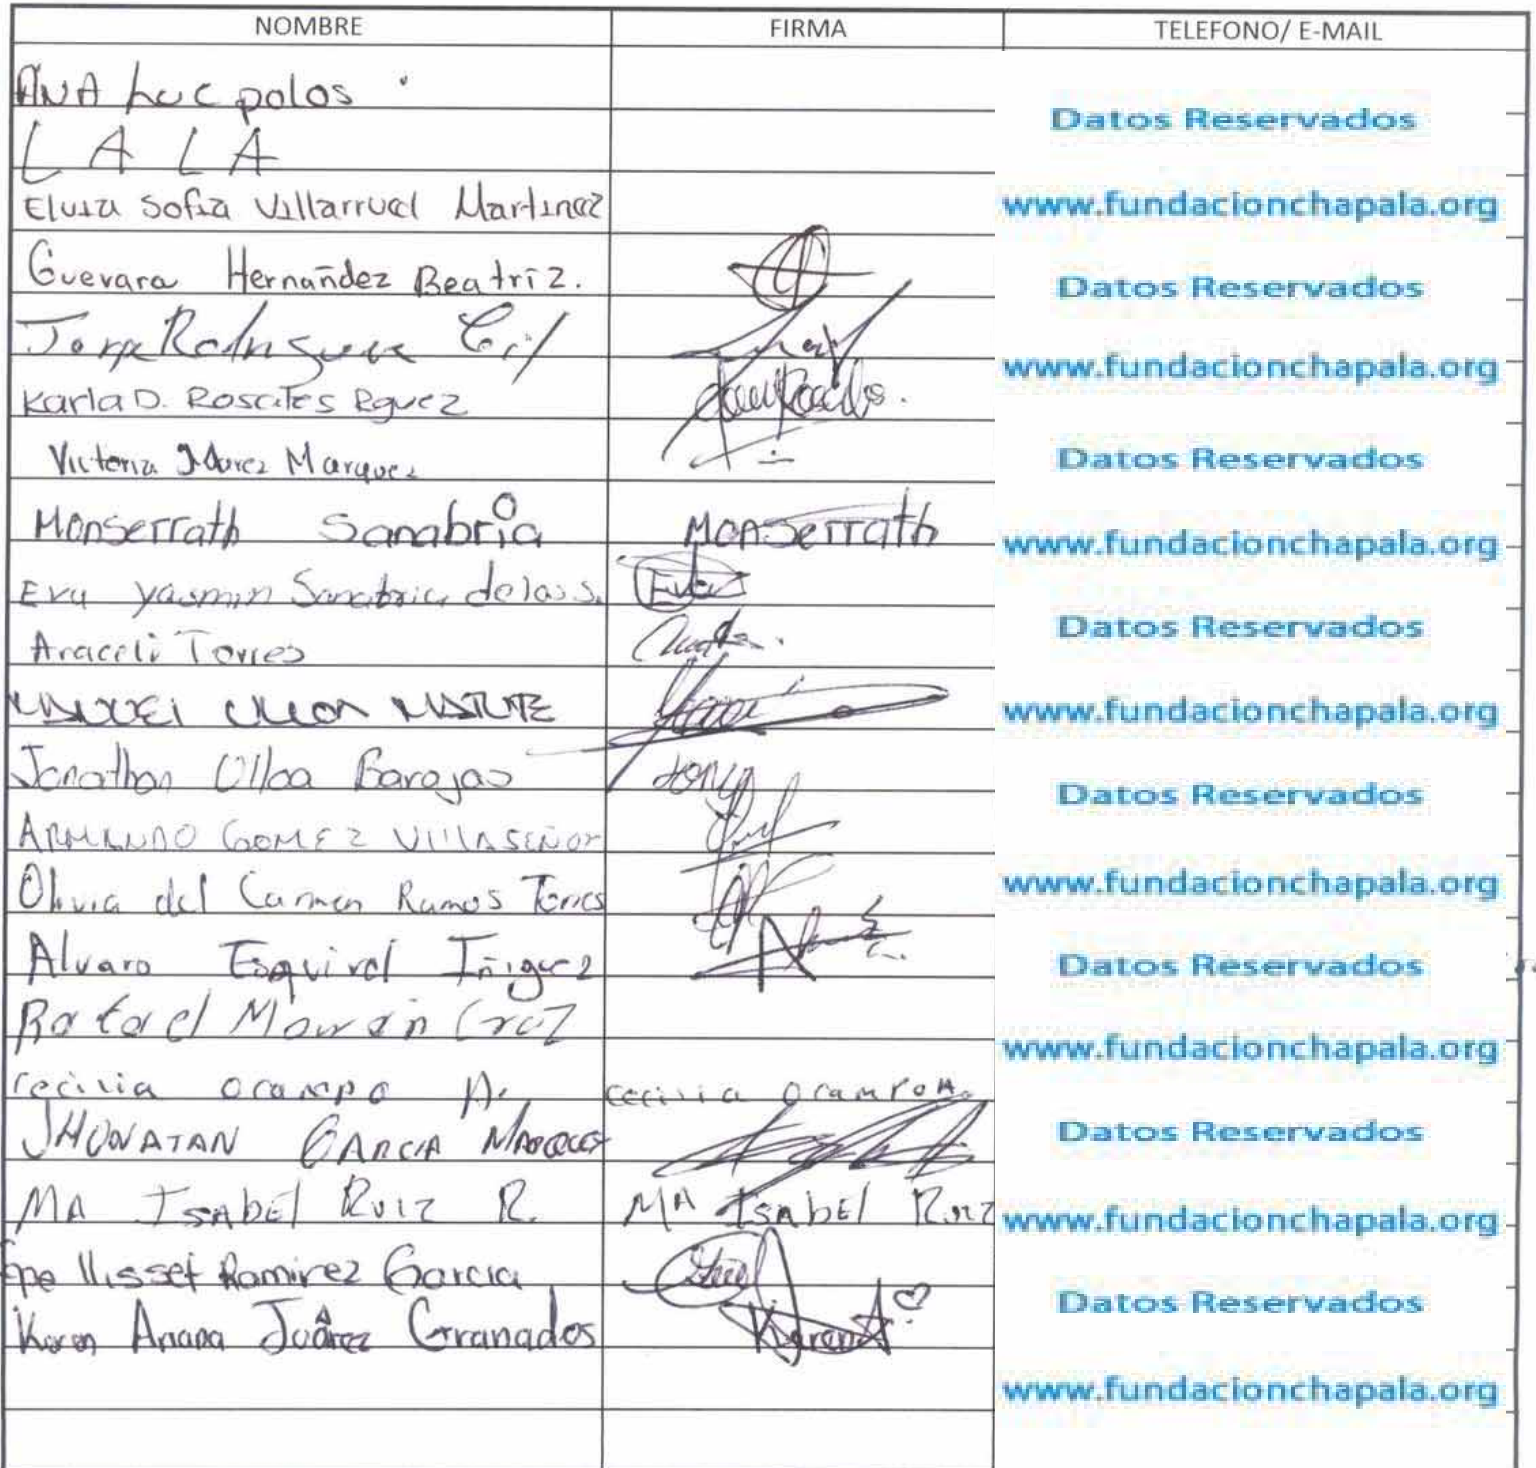 NOMBRE FIRMA TELEFONO/ E-MAIL
ANA Luc polos
Datos Reservados
LALA
Eluza Sofia Villarruel Martinez
www.fundacionchapala.org
Guevara Hernández Beatriz.
Datos Reservados
Jorge Rodriguez Gil
www.fundacionchapala.org
Karla D. Rosales Rguez
Victoria Marquez
Datos Reservados
Monserrath Sanabria Monserrath
www.fundacionchapala.org
Eva Yasmin Sanabria de la S. Eva
Datos Reservados
Araceli Torres
MANUEL ULLOA MATUTE
www.fundacionchapala.org
Jonathan Ulloa Barajas Jony
Datos Reservados
ARMANDO GOMEZ VILLASEÑOR
Olivia del Carmen Ramos Torres
www.fundacionchapala.org
Alvaro Esquivel Iñiguez
Datos Reservados
Rafael Morán Cruz
www.fundacionchapala.org
Cecilia ocampo A. Cecilia Ocampo A.
JHONATAN GARCIA MARQUEZ
Datos Reservados
MA ISABEl RUIZ R. MA ISAbEl Ruiz
www.fundacionchapala.org
llisset Ramirez Garcia
Datos Reservados
Karen Ariana Juárez Granados Karen A
www.fundacionchapala.org